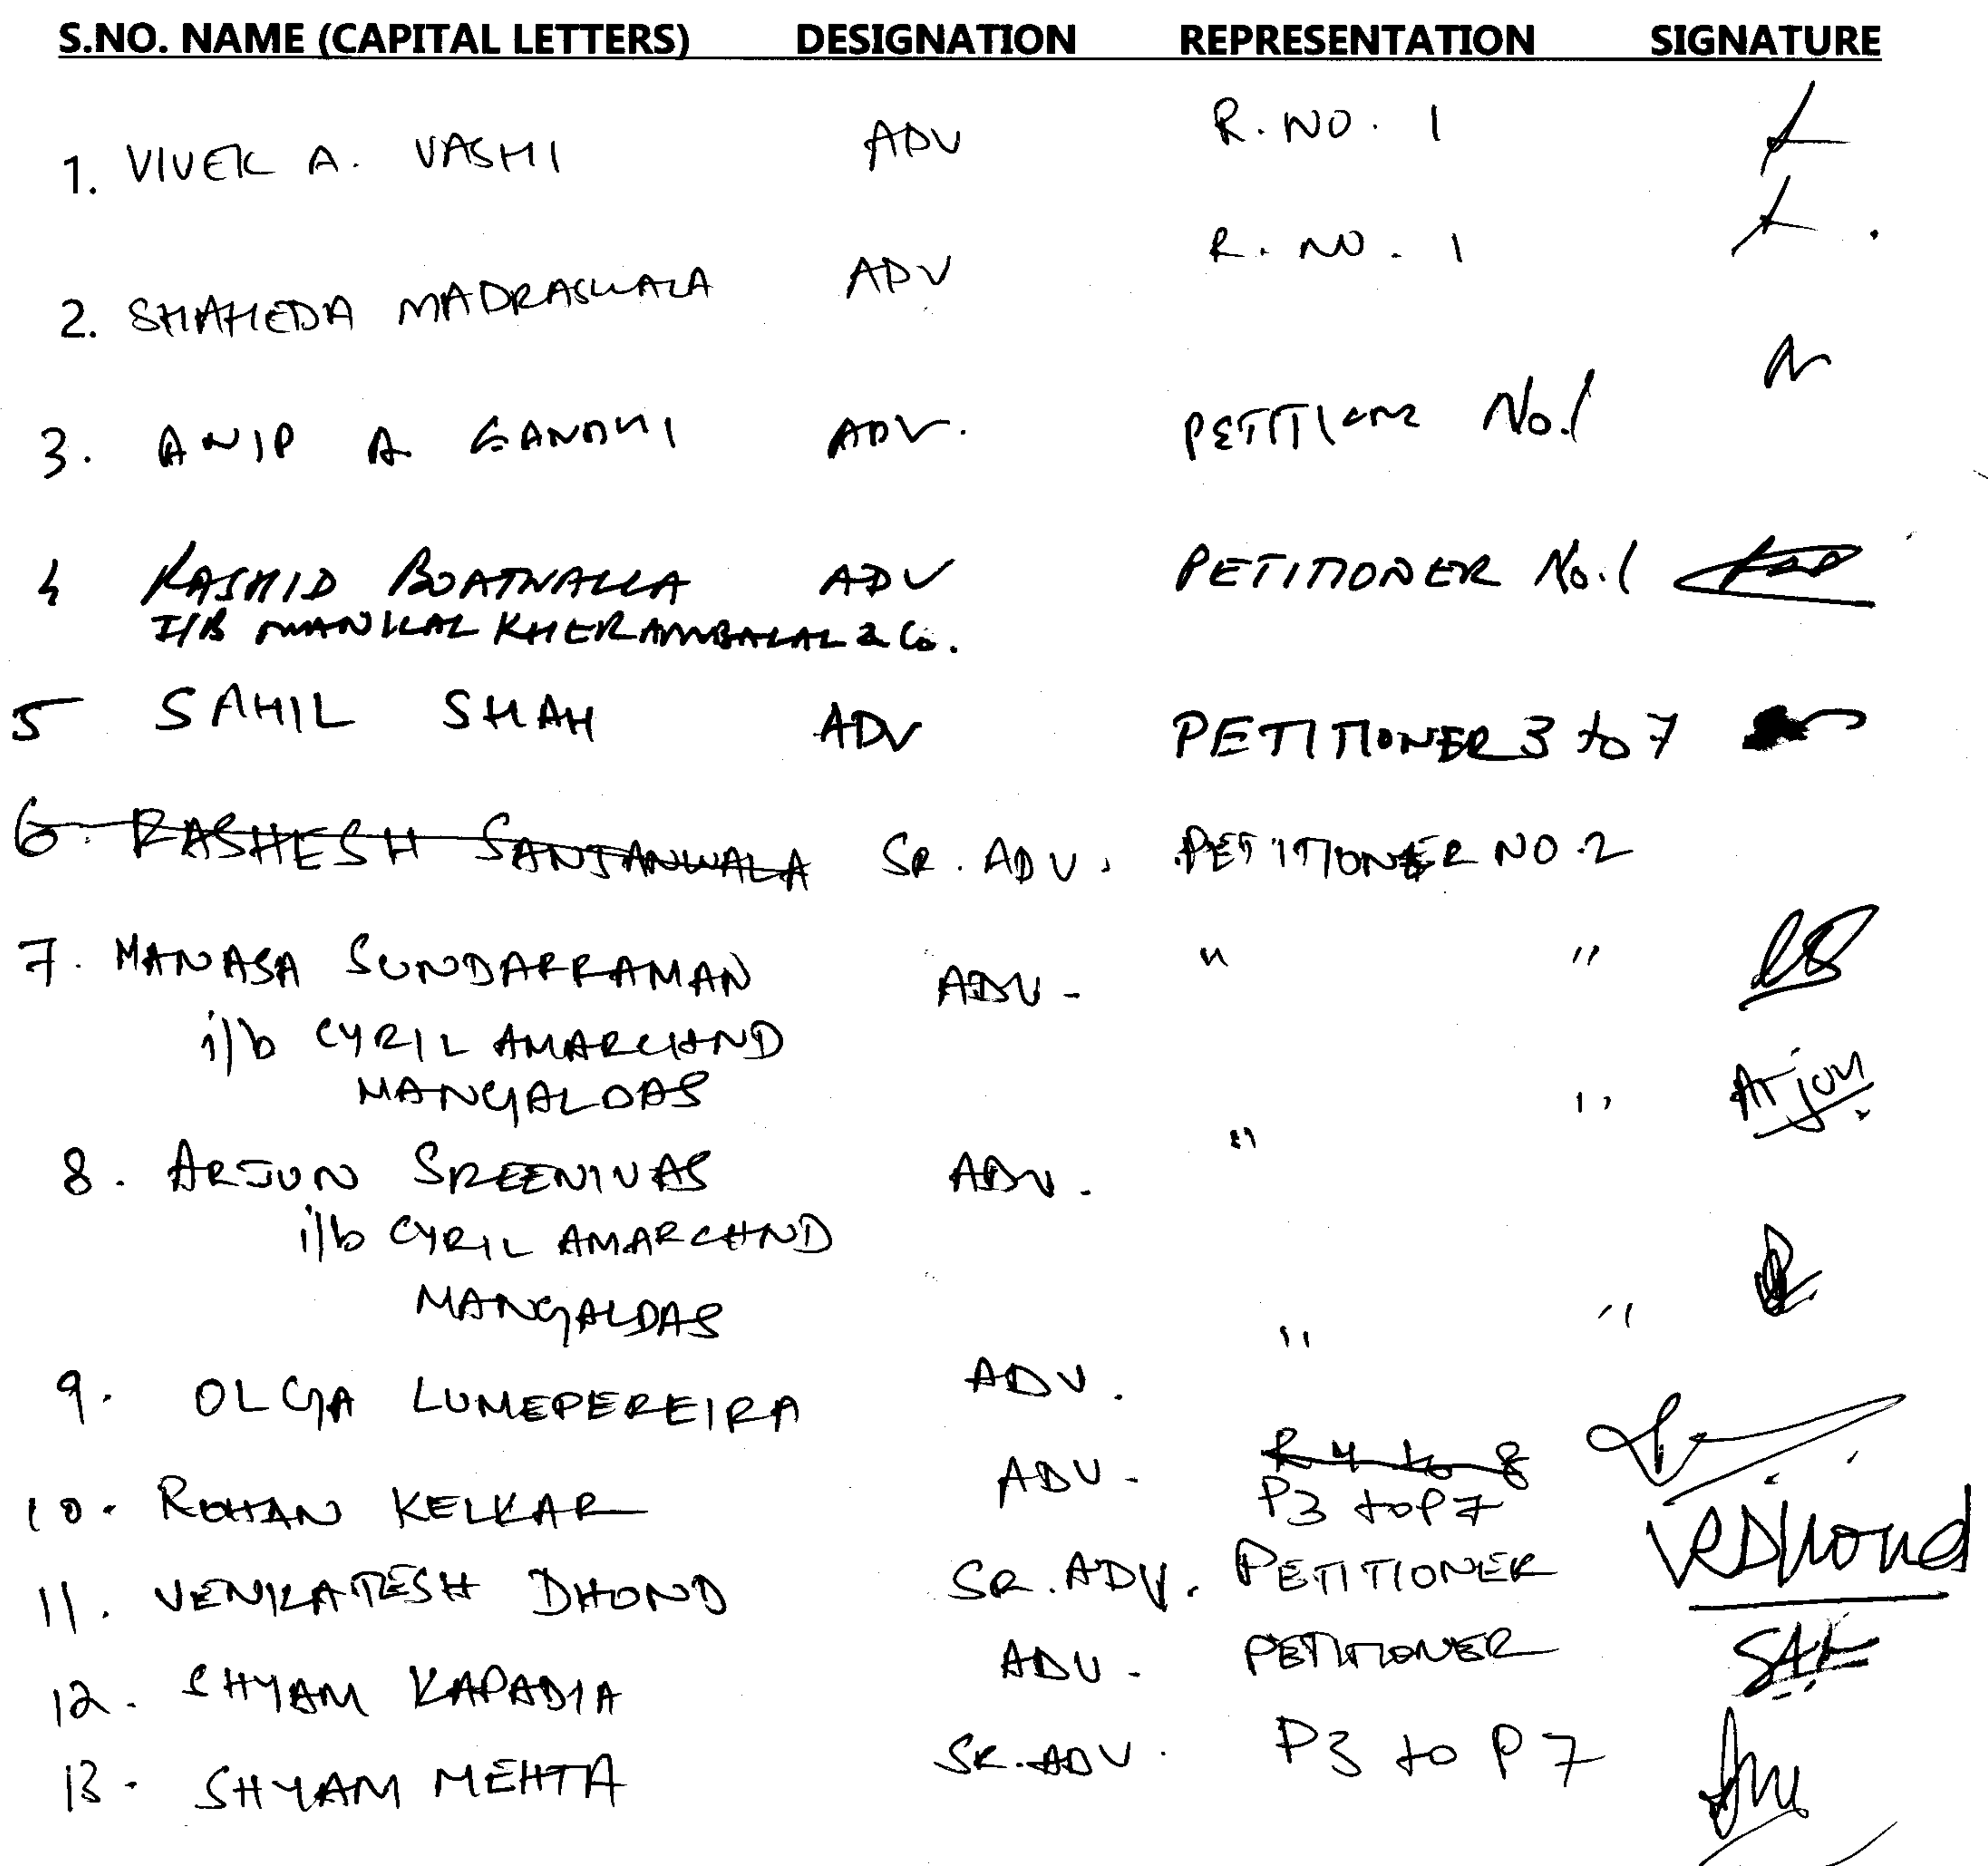 S.NO. NAME (CAPITAL LETTERS) DESIGNATION REPRESENTATION SIGNATURE
1. VIVEK A. VASHI ADV R. NO. 1
2. SHAHEDA MADRASWALA ADV R. NO. 1
3. ANIP A GANDHI ADV. PETITIONER No.1
4 RASHID BOATWALLA ADV PETITIONER No.1
I/B MANILAL KHER AMBALAL & Co.
5 SAHIL SHAH ADV PETITIONER 3 to 7
6. RASHESH SANJANWALA SR. ADV. PETITIONER NO.2
7. MANASA SUNDARRAMAN ADV - " "
i/b CYRIL AMARCHAND
MANGALDAS
8. ARJUN SREENIVAS ADV. " " Arjun
i/b CYRIL AMARCHND
MANGALDAS
9. OLGA LUMEPEREIRA ADV. " "
10. ROHAN KELKAR ADV - R 4 to 8
P3 to P7
11. VENKATESH DHOND SR. ADV. PETITIONER VRDhond
12. SHYAM KAPADIA ADV - PETITIONER SAK
13. SHYAM MEHTA SR. ADV. P3 to P7